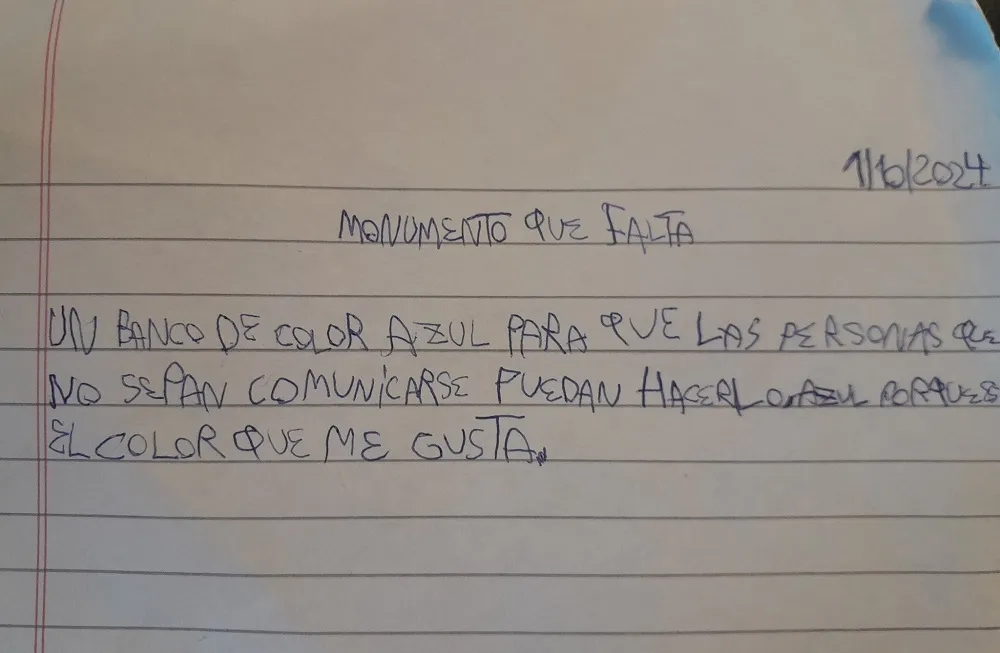 1/10/2024
MONUMENTO QUE FALTA
UN BANCO DE COLOR AZUL PARA QUE LAS PERSONAS QUE
NO SEPAN COMUNICARSE PUEDAN HACERLO. AZUL PORQUE ES
EL COLOR QUE ME GUSTA.